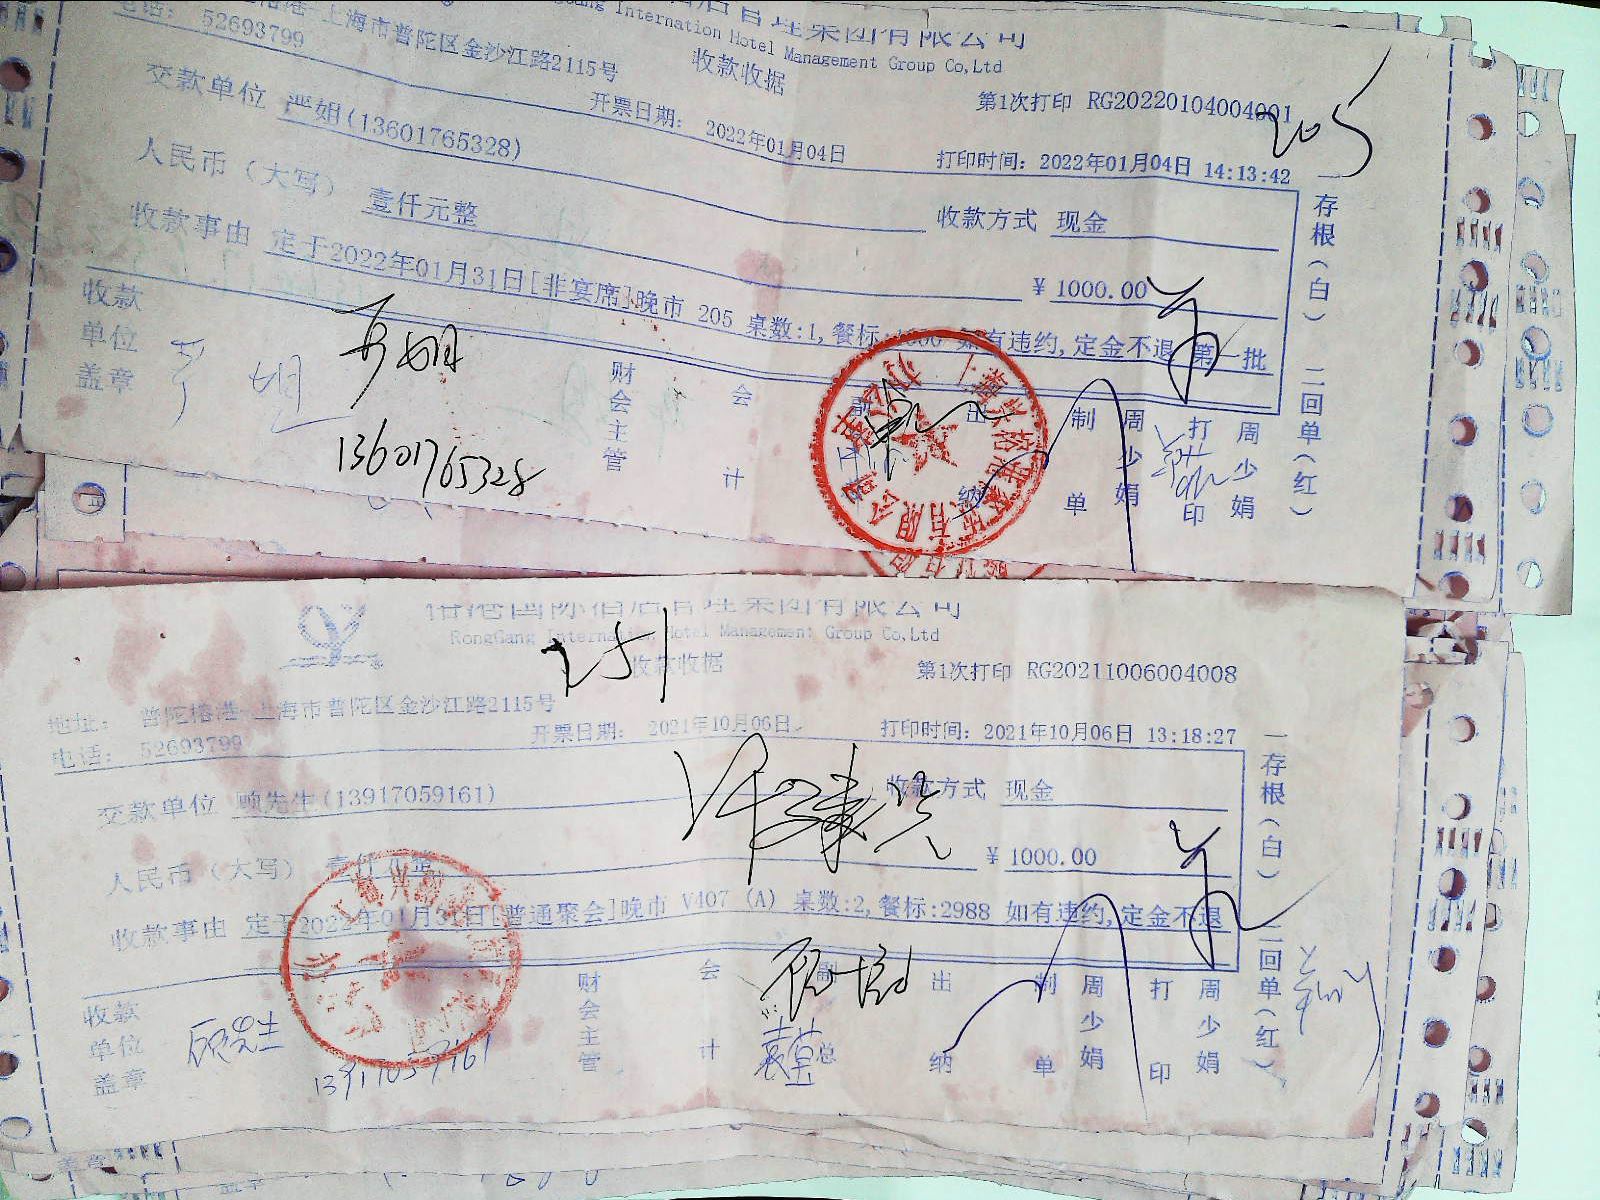 酒店管理集团有限公司
International Hotel Management Group Co,Ltd
收款收据
上海市普陀区金沙江路2115号
电话: 52693799
第1次打印 RG20220104004001
205
开票日期: 2022年01月04日
打印时间: 2022年01月04日 14:13:42
交款单位 严姐(13601765328)
收款方式 现金
人民币（大写） 壹仟元整
¥ 1000.00
收款事由 定于2022年01月31日[非宴席]晚市 205 桌数:1,餐标:1000 如有违约,定金不退 第一批
收款单位盖章
严姐
严姐
13601765328
财会主管
会计
出纳
制单
周少娟
打印
周少娟
一存根(白)
二回单(红)
榕港国际酒店管理集团有限公司
RongGang International Hotel Management Group Co,Ltd
收款收据
第1次打印 RG20211006004008
地址: 普陀榕港-上海市普陀区金沙江路2115号
电话: 52693799
开票日期: 2021年10月06日
打印时间: 2021年10月06日 13:18:27
交款单位 顾先生(13917059161)
收款方式 现金
人民币（大写） 壹仟元整
¥ 1000.00
收款事由 定于2022年01月31日[普通聚会]晚市 V407 (A) 桌数:2,餐标:2988 如有违约,定金不退
收款单位盖章
顾先生
13917059161
财会主管
会计
副总
出纳
制单
周少娟
打印
周少娟
一存根(白)
二回单(红)